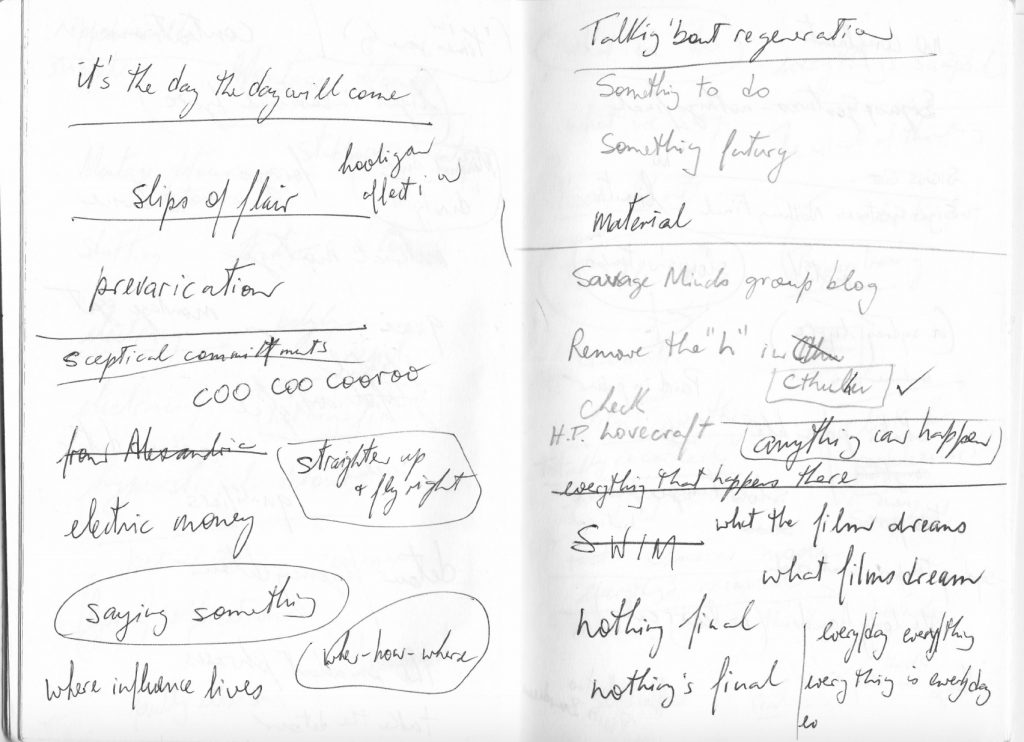 it's the day the day will come
hooligan
affection
slips of flair
prevarication
sceptical commitments
coo coo cooroo
from Alexandria
straighten up
+ fly right
electric money
saying something
when-how-where
where influence lives
Talking 'bout regeneration
Something to do
Something
material
Savage Minds group blog
Remove the "h" in
Cthulhu ✓
check
H.P. Lovecraft
anything can happen
everything that happens there
SWIM
what the film dreams
what films dream
nothing final
nothing's final
everyday everything
everything is everyday
eo